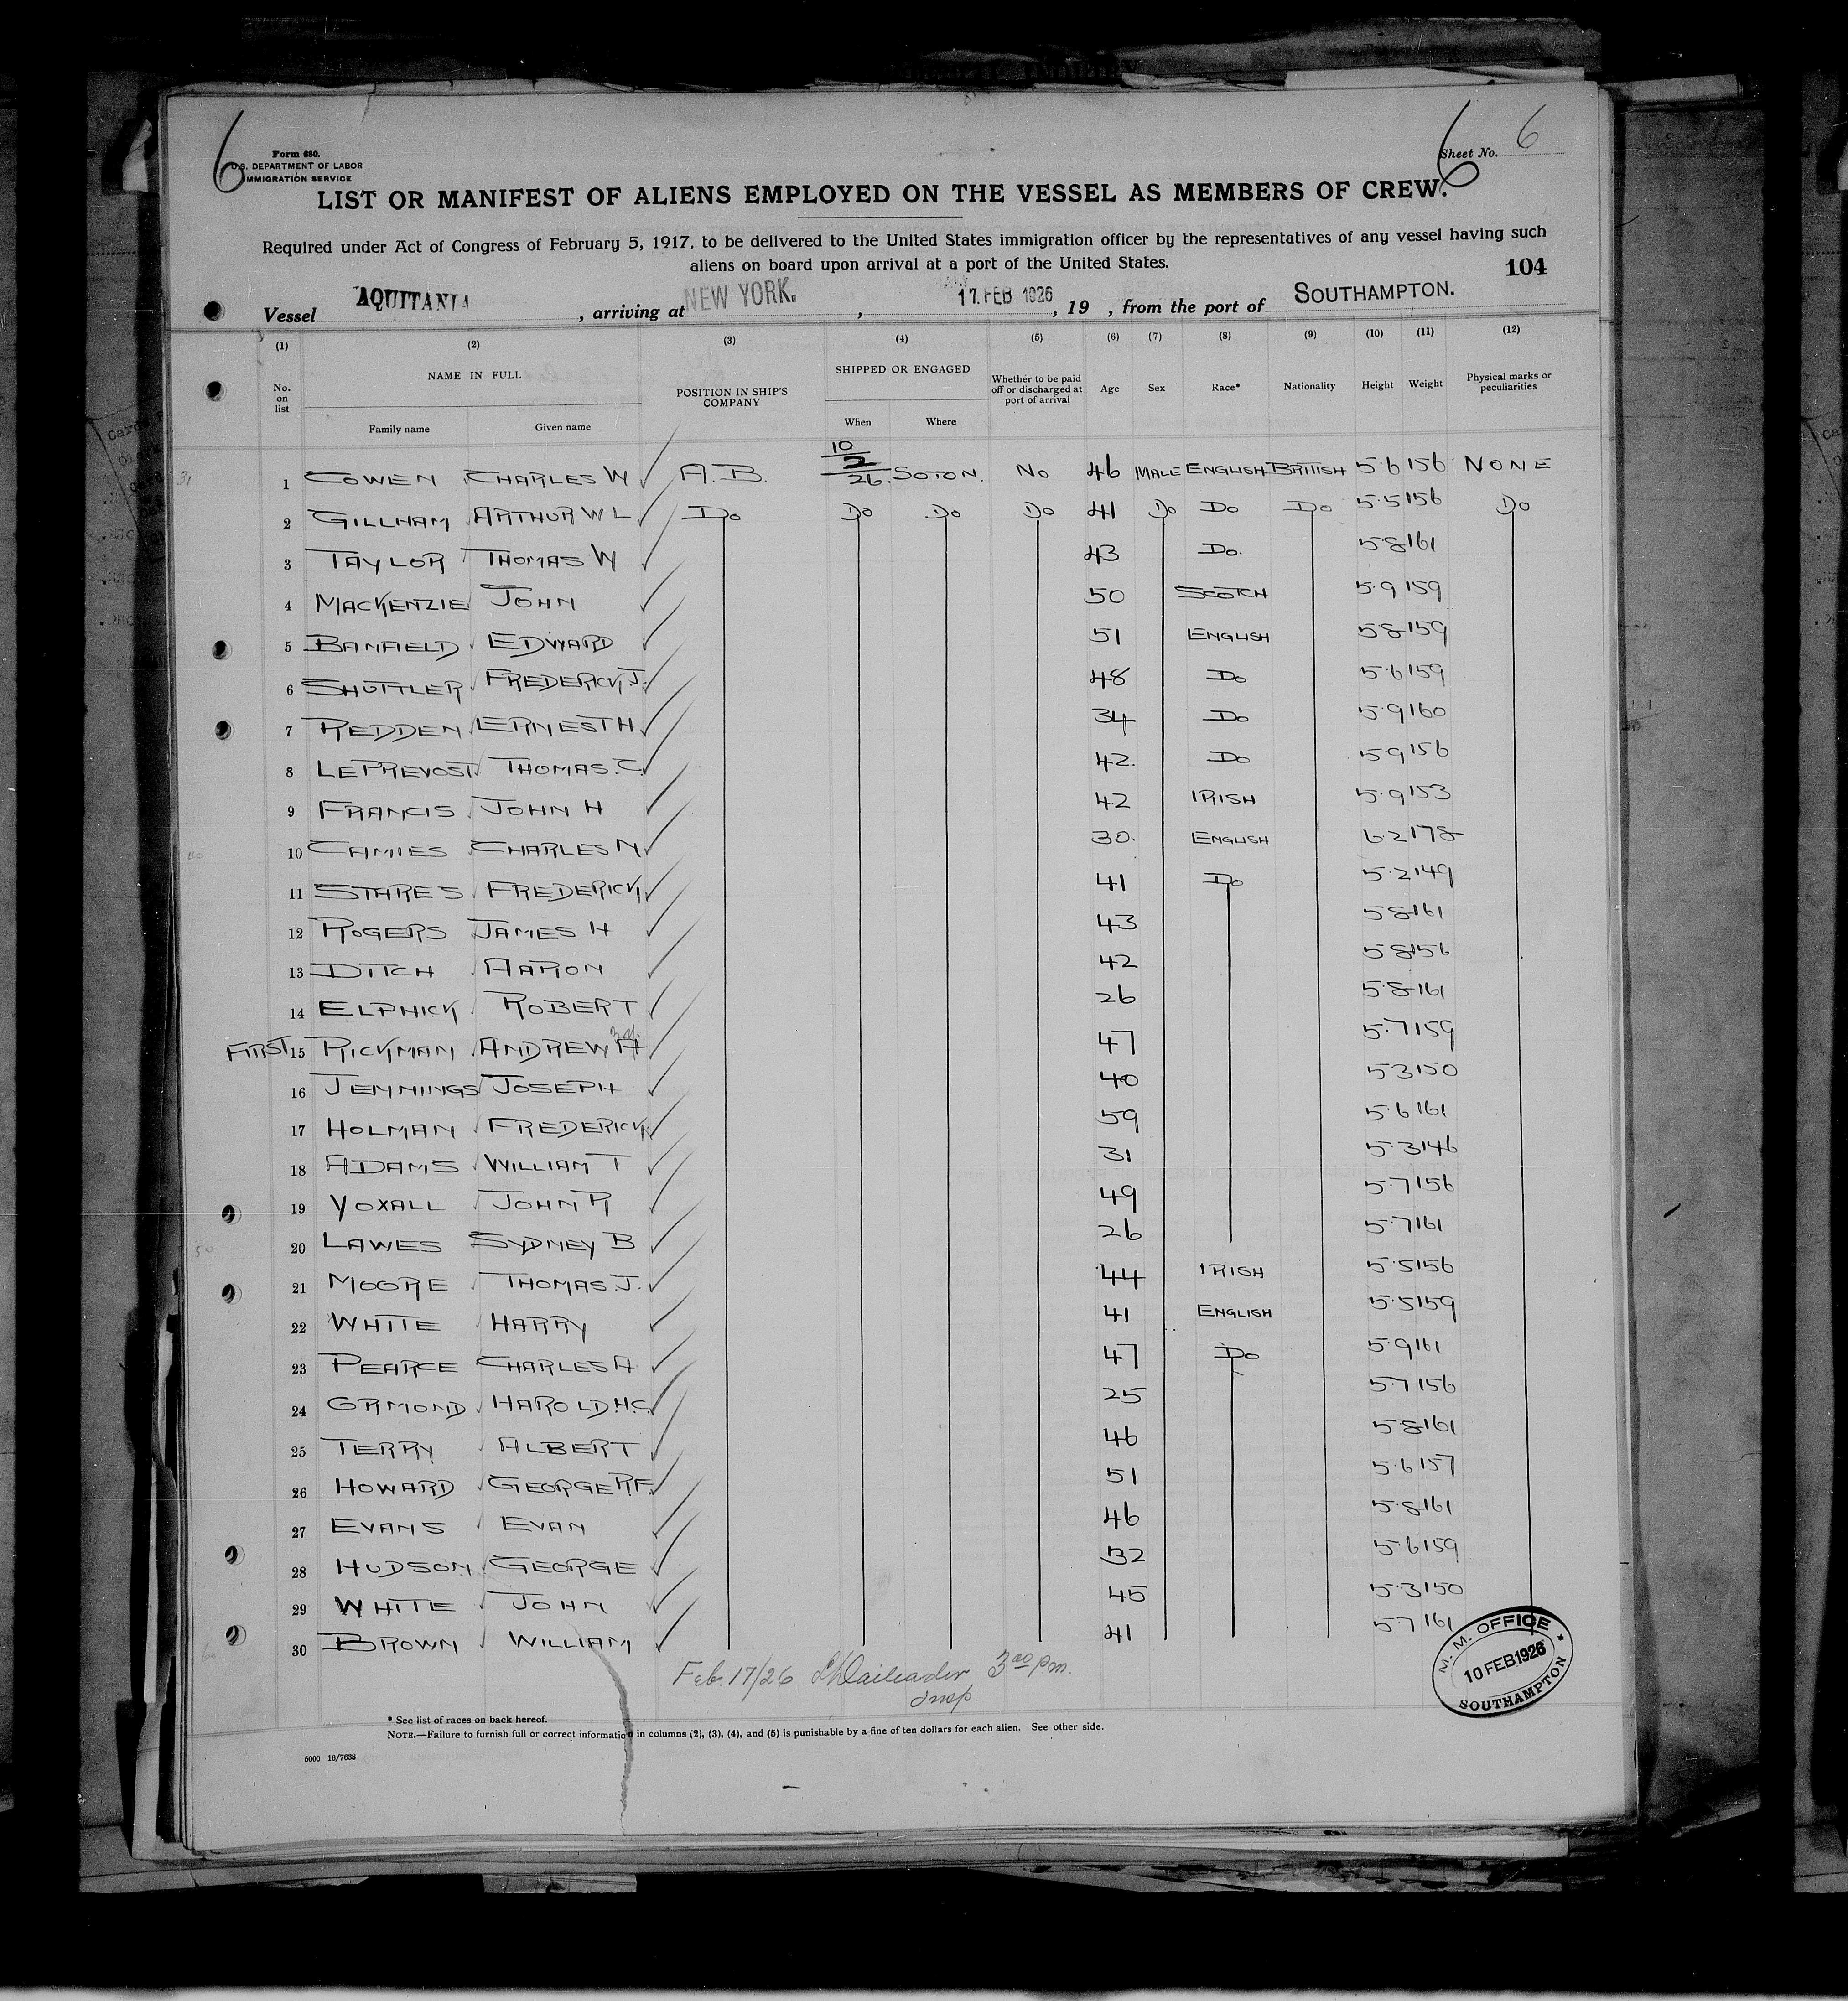 6 Form 680. 6 Sheet No. 6
U.S. DEPARTMENT OF LABOR
IMMIGRATION SERVICE
LIST OR MANIFEST OF ALIENS EMPLOYED ON THE VESSEL AS MEMBERS OF CREW.
Required under Act of Congress of February 5, 1917, to be delivered to the United States immigration officer by the representatives of any vessel having such
aliens on board upon arrival at a port of the United States.
104
Vessel AQUITANIA, arriving at NEW YORK., 17. FEB 1926, 19 , from the port of SOUTHAMPTON.
(1) (2) (3) (4) (5) (6) (7) (8) (9) (10) (11) (12)
No. on list NAME IN FULL POSITION IN SHIP'S COMPANY SHIPPED OR ENGAGED Whether to be paid off or discharged at port of arrival Age Sex Race* Nationality Height Weight Physical marks or peculiarities
Family name Given name When Where
31 1 COWEN CHARLES W A.B. 10/2/26. SOTON. NO 46 MALE ENGLISH BRITISH 5·6 156 NONE
2 GILLHAM ARTHUR W L DO DO DO DO 41 DO DO DO 5·5 156 DO
3 TAYLOR THOMAS W 43 DO. 5·8 161
4 MACKENZIE JOHN 50 SCOTCH 5·9 159
5 BANFIELD EDWARD 51 ENGLISH 5·8 159
6 SHUTTLER FREDERICK J. 48 DO 5·6 159
7 REDDEN ERNEST H 34 DO 5·9 160
8 LEPREVOST THOMAS. C. 42. DO 5·9 156
9 FRANCIS JOHN H 42 IRISH 5·9 153
40 10 CAMIES CHARLES N 30. ENGLISH 6·2 178
11 STARES FREDERICK 41 DO 5·2 149
12 ROGERS JAMES H 43 5·8 161
13 DITCH AARON 42 5·8 156
14 ELPHICK ROBERT 26 5·8 161
FIRST 15 RICKMAN ANDREW H 47 5·7 159
16 JENNINGS JOSEPH 40 5·3 150
17 HOLMAN FREDERICK 59 5·6 161
18 ADAMS WILLIAM T 31 5·3 146
19 YOXALL JOHN R 49 5·7 156
50 20 LAWES SYDNEY B 26 5·7 161
21 MOORE THOMAS. J. 44 IRISH 5·5 156
22 WHITE HARRY 41 ENGLISH 5·5 159
23 PEARCE CHARLES A 47 DO 5·9 161
24 ORMOND HAROLD. H.C. 25 5·7 156
25 TERRY ALBERT 46 5·8 161
26 HOWARD GEORGE R.F. 51 5·6 157
27 EVANS EVAN 46 5·8 161
28 HUDSON GEORGE 32 5·6 159
29 WHITE JOHN 45 5·3 150
60 30 BROWN WILLIAM 41 5·7 161
M. M. OFFICE
10 FEB 1926
SOUTHAMPTON
Feb. 17/26 3 00 p.m.
Insp
* See list of races on back hereof.
NOTE.—Failure to furnish full or correct information in columns (2), (3), (4), and (5) is punishable by a fine of ten dollars for each alien. See other side.
5000 16/7638